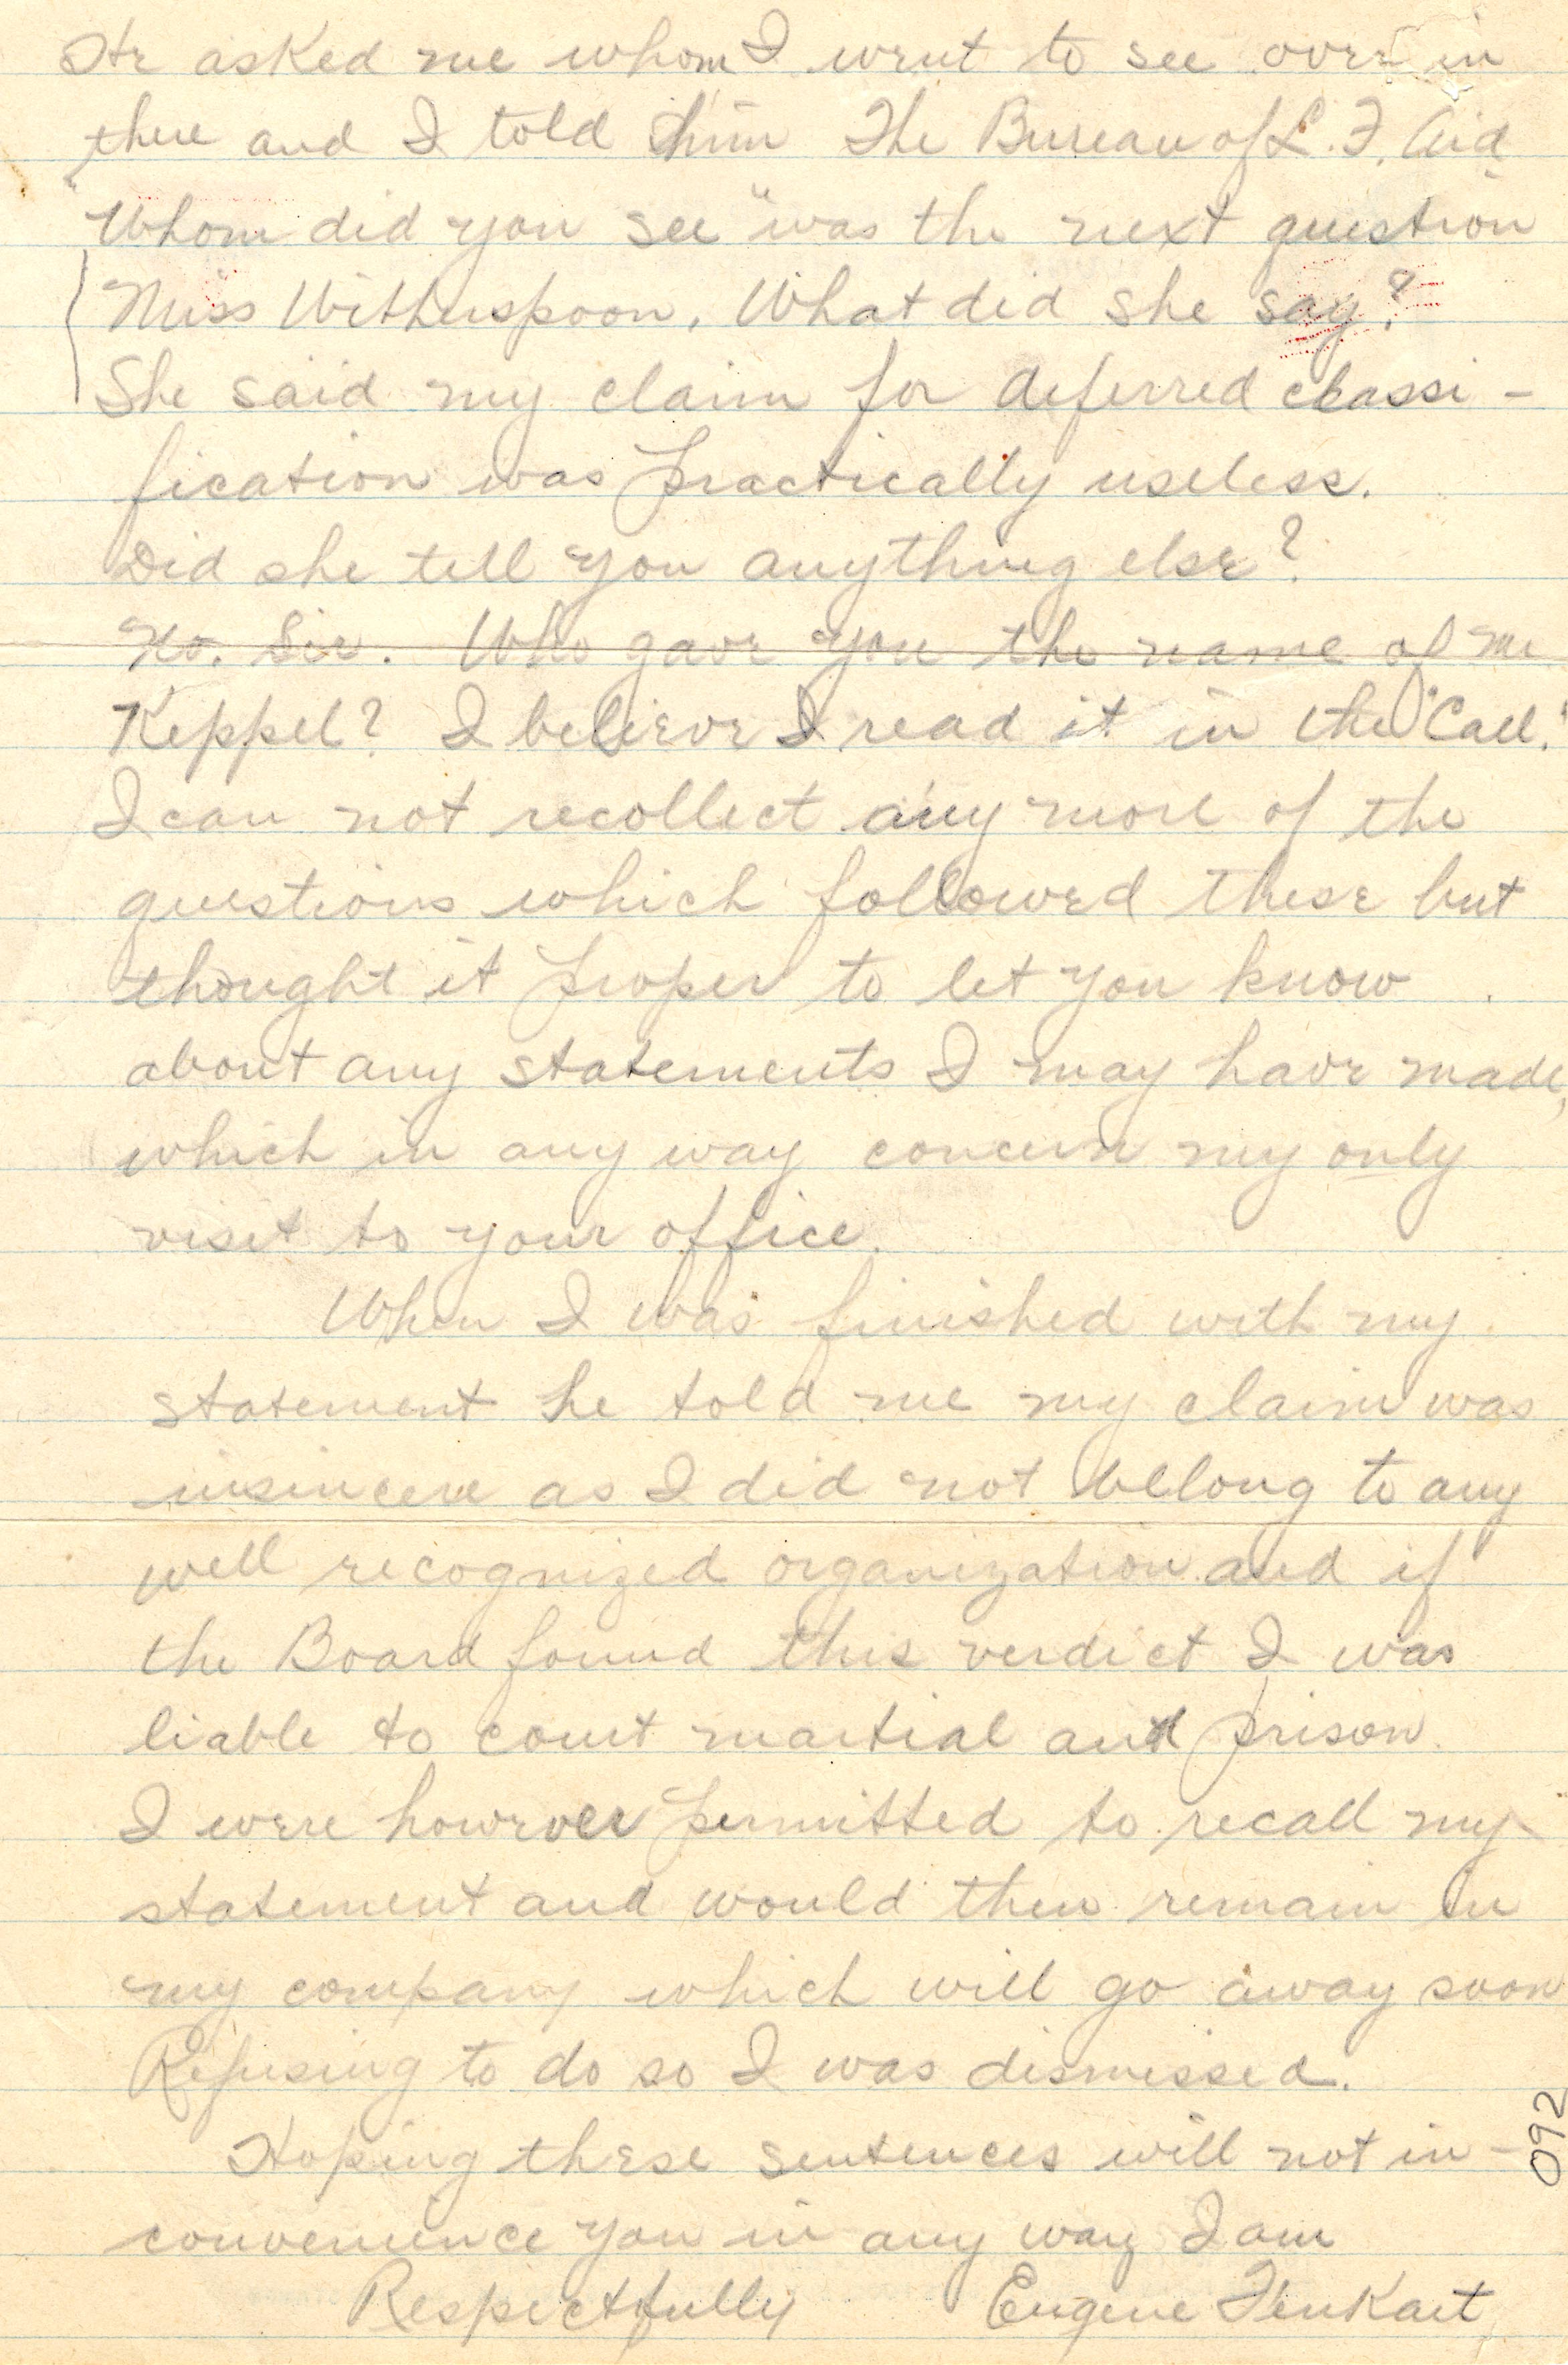 He asked me whom I went to see over in
there and I told him The Bureau of L. F. Aid
"Whom did you see" was the next question
Miss Witherspoon. What did she say?
She said my claim for deferred classi-
fication was practically useless.
Did she tell you anything else?
No. Sir. Who gave you the name of Mr
Keppel? I believe I read it in the "Call."
I can not recollect any more of the
questions which followed these but
thought it proper to let you know
about any statements I may have made,
which in any way concern my only
visit to your office.
When I was finished with my
statement he told me my claim was
insincere as I did not belong to any
well recognized organization and if
the Board found this verdict I was
liable to court martial and prison.
I were however permitted to recall my
statement and would then remain in
my company which will go away soon
Refusing to do so I was dismissed.
Hoping these sentences will not in-
convenience you in any way I am
Respectfully Eugene Finkart,
092